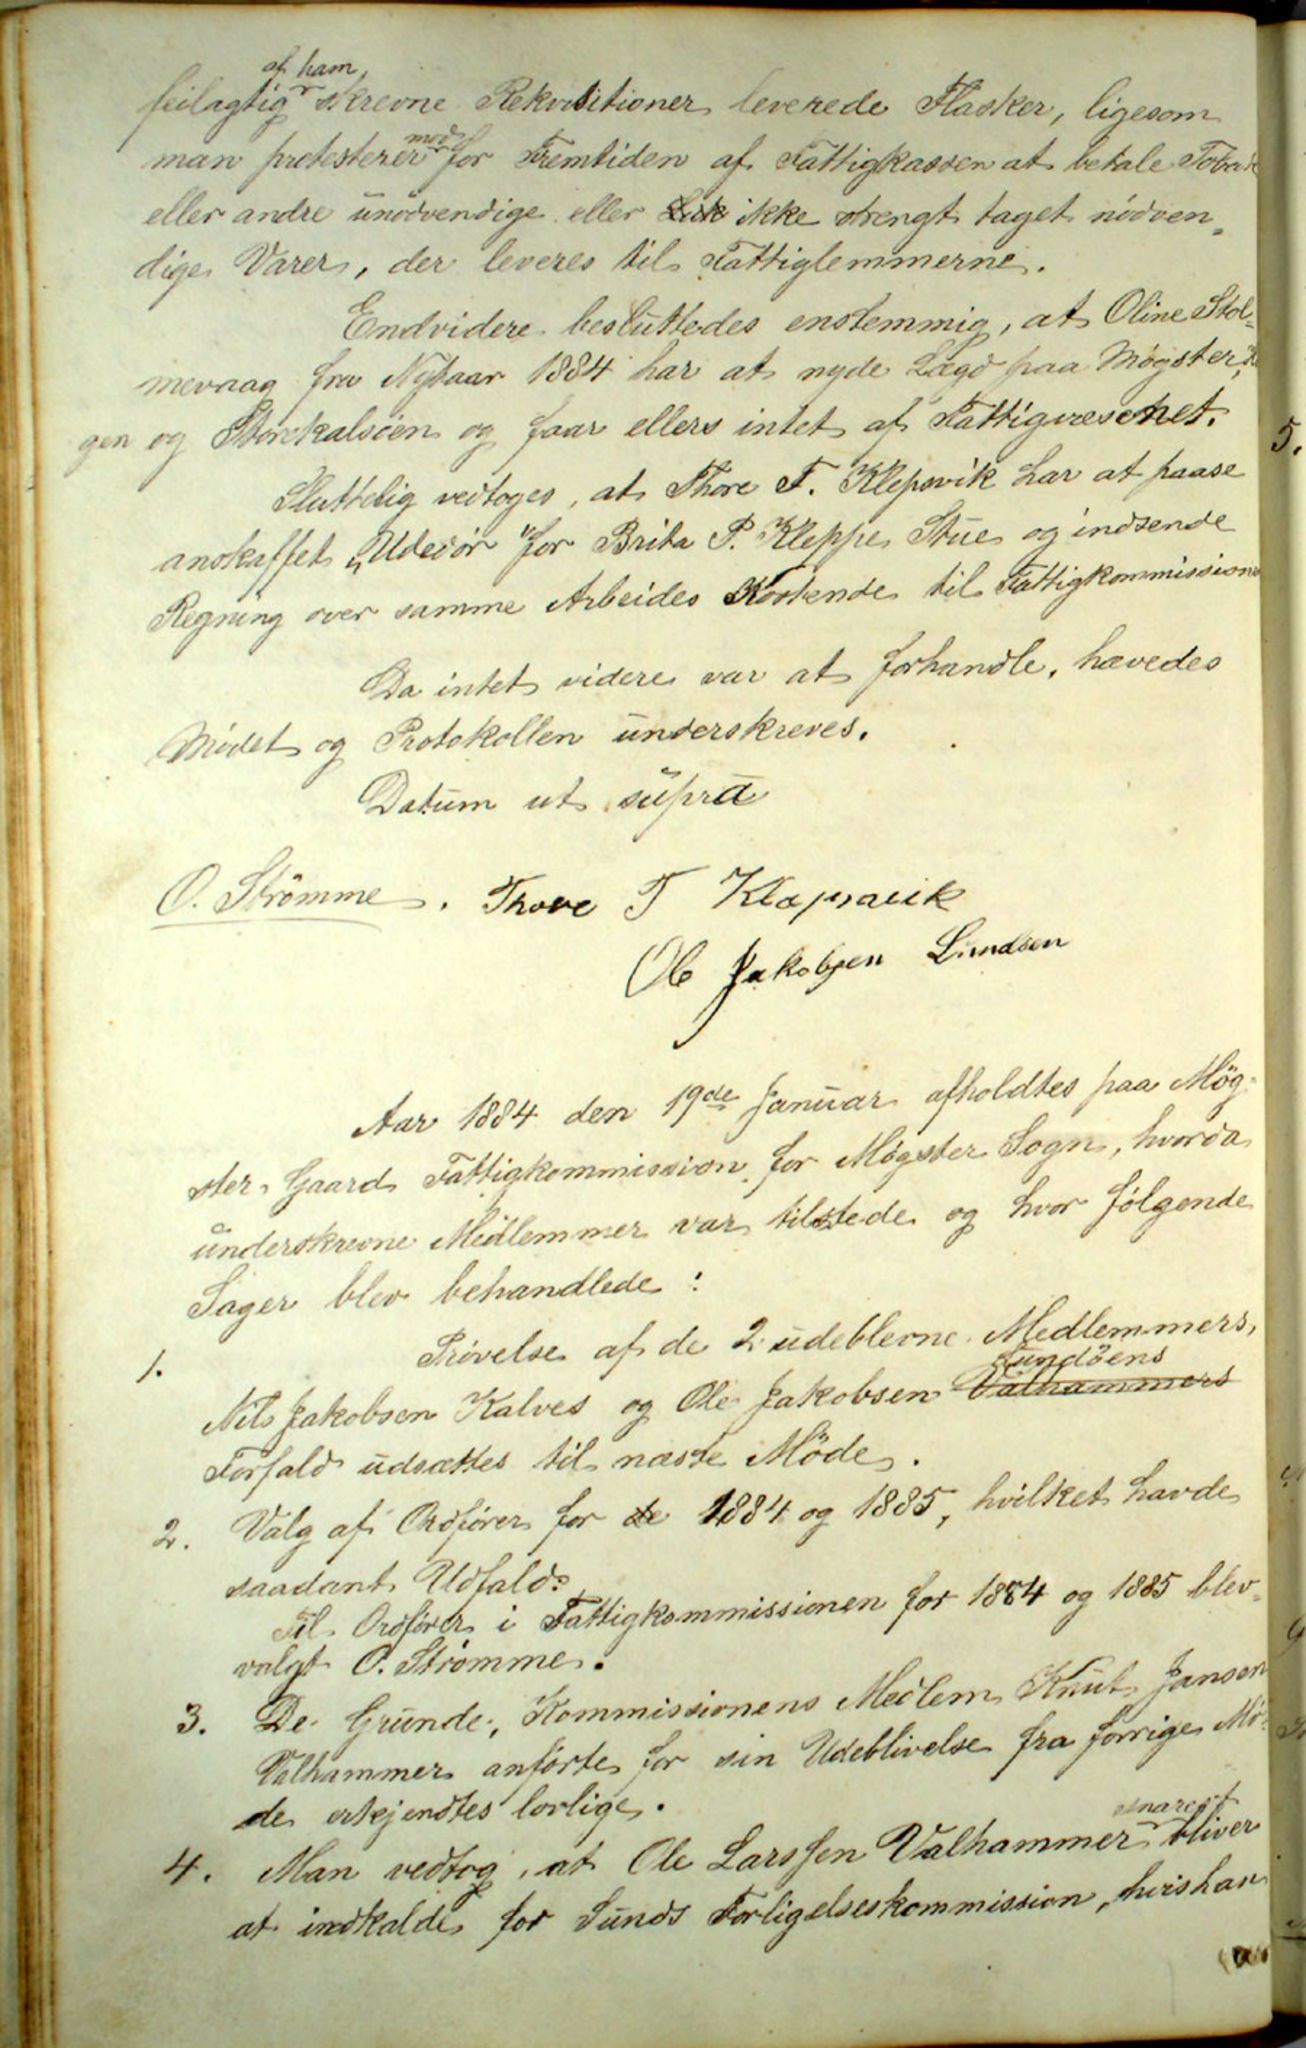 feilagtig af ham skrevne Rekvisitioner leverede Flasker, ligesom
man protesterer mod for Fremtiden af Fattigkassen at betale Tobak
eller andre unödvendige eller ikke strengt taget nödven-
dige Varer, der leveres til Fattiglemmerne.
Endvidere besluttedes enstemmig, at Oline Stol-
mevaag fra Nytaar 1884 har at nyde Lægd paa Møgster,
gen og Storekalsöen og faar ellers intet af Fattigvæsenet.
Sluttelig vedtoges, at Thore T. Klepsvik har at paase
anskaffet "Udedör" for Brita P. Kleppe Stue og indsende
Regning over samme Arbeides Kostende til Fattigkommissionen
Da intet videre var at forhandle, hævedes
Mödet og Protokollen underskreves.
Datum ut supra
O. Strömme. Thore T Klæpsvik
Ole Jakobsen Sundöen
Aar 1884 den 19de Januar afholdtes paa Møg-
ster Gaard Fattigkommission for Møgster Sogn, hvorda
underskrevne Medlemmer var tilstede og hvor følgende
Sager blev behandlede:
1. Prøvelse af de 2 udeblevne Medlemmers,
Nils Jakobsen Kalves og Ole Jakobsen Valhammers Sundöens
Forfald udsættes til næste Möde.
2. Valg af Ordfører for de 1884 og 1885, hvilket havde
saadant Udfald:
Til Ordfører i Fattigkommissionen for 1884 og 1885 blev
valgt O. Strömme.
3. De Grunde, Kommissionens Medlem Knut Jansen
Valhammer anførte for sin Udeblivelse fra forrige Mö-
de erkjendtes lovlige.
4. Man vedtog, at Ole Larssen Valhammer snarest bliver
at indkalde for Sunds Forligelseskommission, hvis han
5.